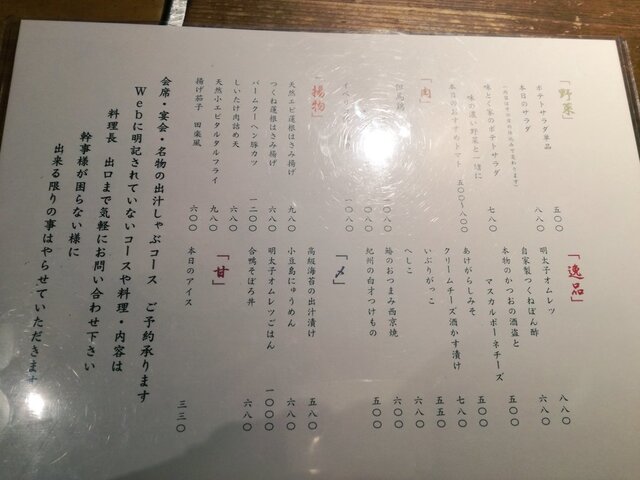 「野菜」
ポテトサラダ単品 五〇〇
本日のサラダ 八八〇
味とく家のポテトサラダ 七八〇
味の濃い野菜と一緒に
本日のおすすめトマト 五〇〇〜八〇〇
「肉」
但馬鶏
一〇八〇
イベリ
一〇八〇
「揚物」
天然エビ蓮根はさみ揚げ 九八〇
つくね蓮根はさみ揚げ 六八〇
バームクーヘン豚カツ 一二〇〇
しいたけ肉詰め天 六八〇
天然小エビタルタルフライ 九八〇
揚げ茄子 田楽風 六〇〇
「逸品」
明太子オムレツ 八八〇
自家製つくねぽん酢 六八〇
本物のかつおの酒盗と 五〇〇
マスカルポーネチーズ
あけがらしみそ 五〇〇
クリームチーズ酒かす漬け 七八〇
いぶりがっこ 五五〇
へしこ 六八〇
鯵のおつまみ西京焼 六〇〇
紀州の白才つけもの 五〇〇
「〆」
高級海苔の出汁漬け 五八〇
小豆島にゅうめん 六八〇
明太子オムレツごはん 一〇〇〇
合鴨そぼろ丼 六八〇
「甘」
本日のアイス 三三〇
会席・宴会・名物の出汁しゃぶコース ご予約承ります
Webに明記されていないコースや料理・内容は
料理長 出口まで気軽にお問い合わせ下さい
幹事様が困らない様に
出来る限りの事はやらせていただきます